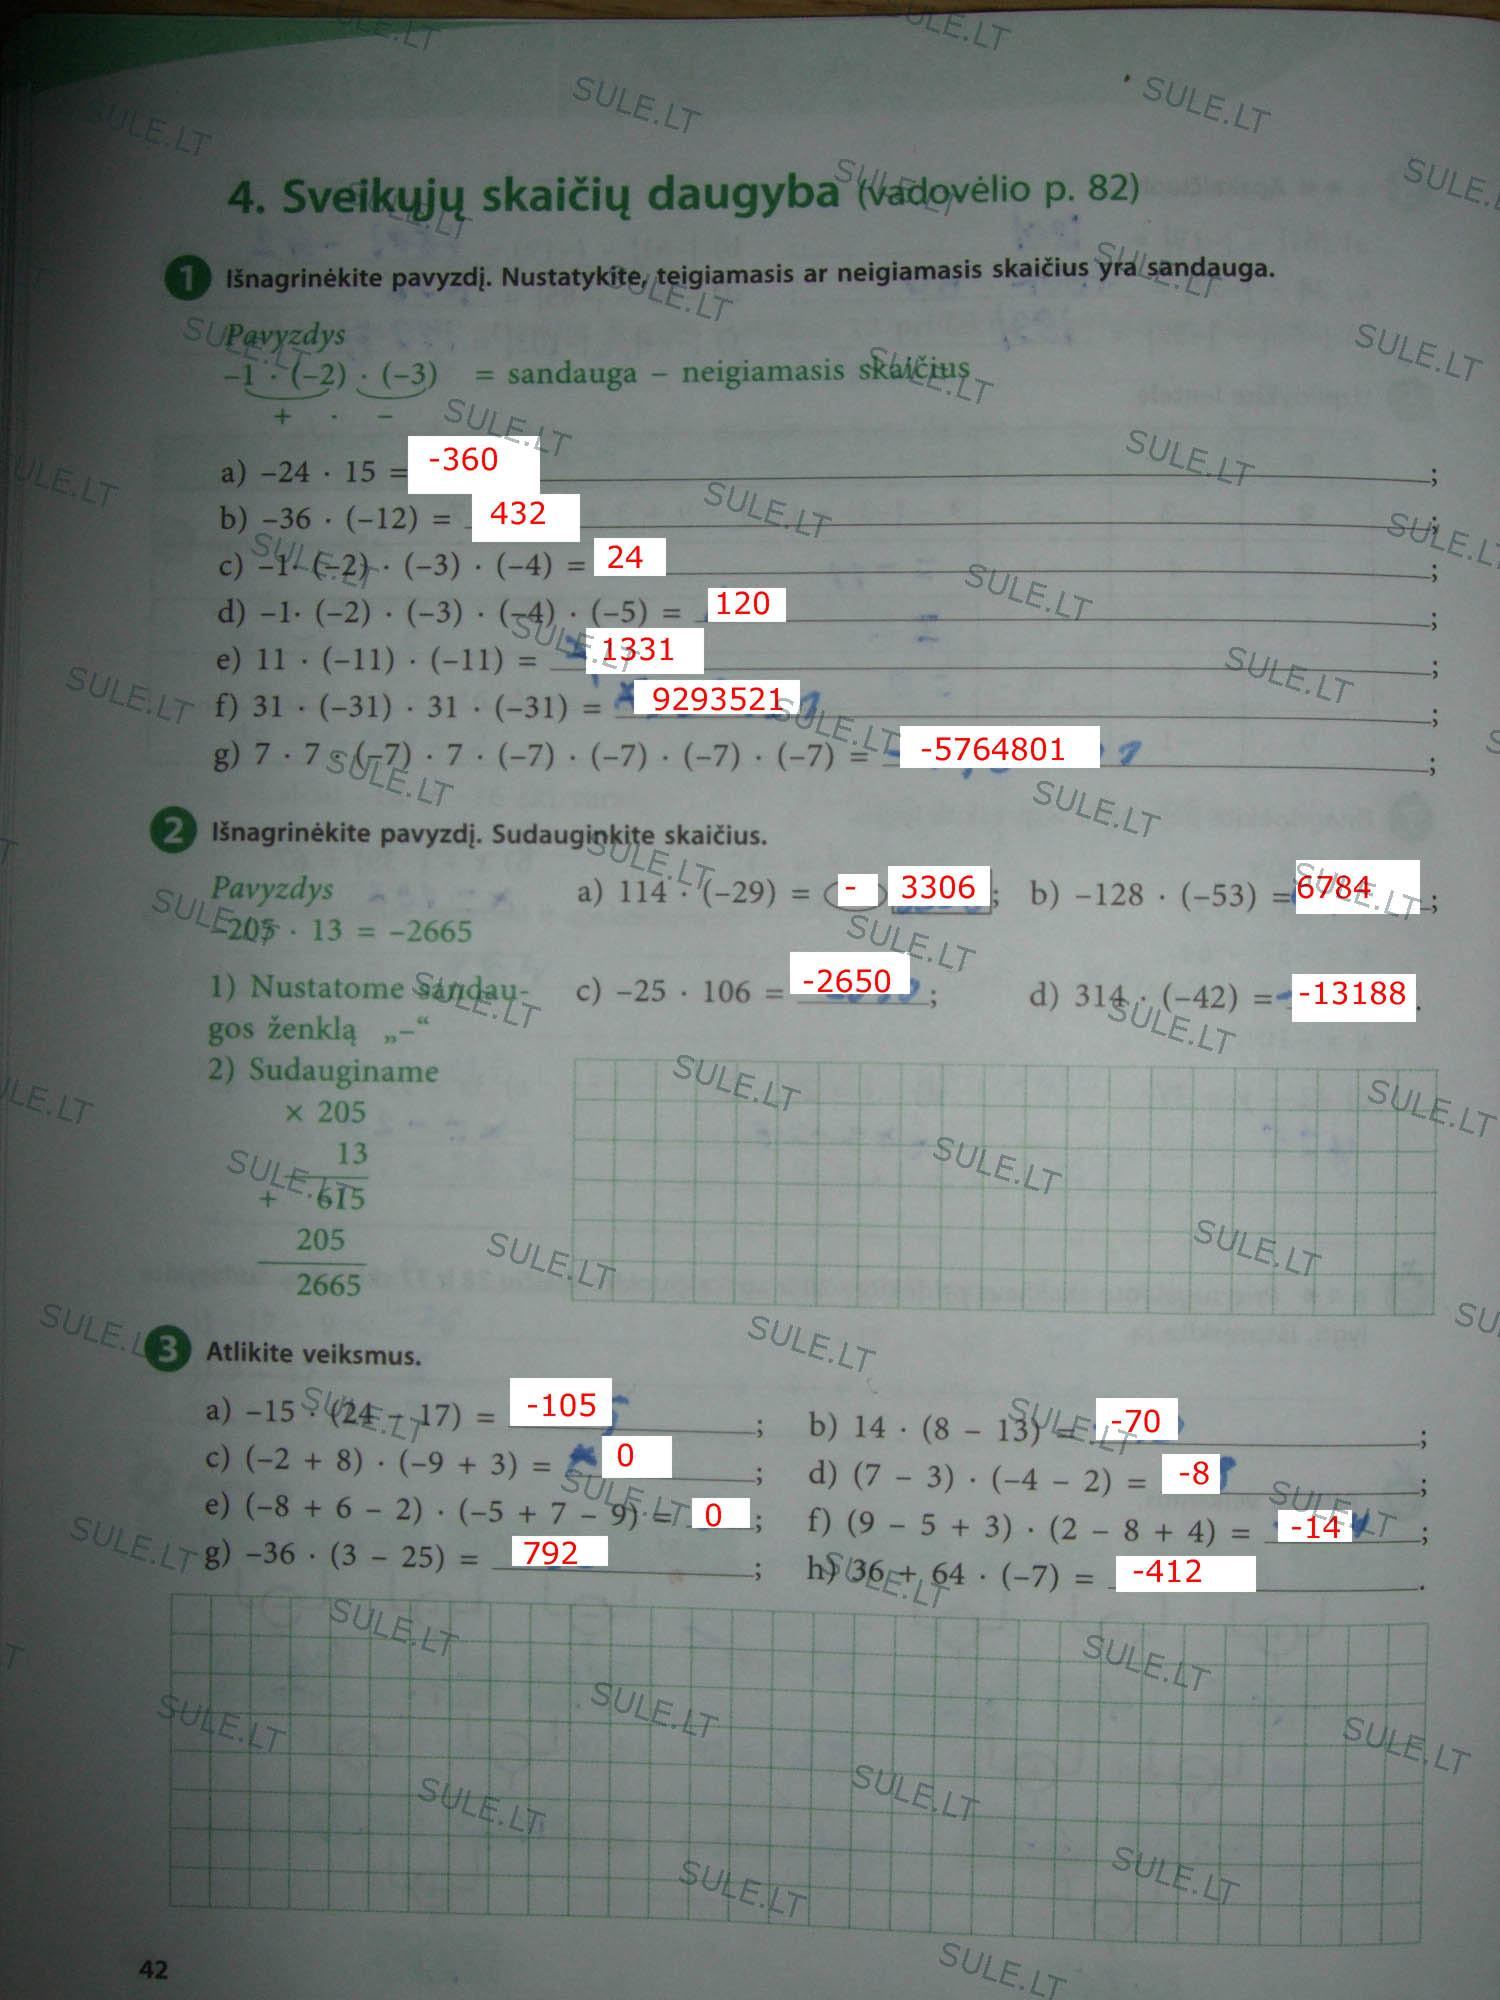 4. Sveikųjų skaičių daugyba (vadovėlio p. 82)
1 Išnagrinėkite pavyzdį. Nustatykite, teigiamasis ar neigiamasis skaičius yra sandauga.
Pavyzdys
–1 · (–2) · (–3) = sandauga – neigiamasis skaičius
+ · –
a) –24 · 15 = -360 ;
b) –36 · (–12) = 432 ;
c) –1· (–2) · (–3) · (–4) = 24 ;
d) –1· (–2) · (–3) · (–4) · (–5) = 120 ;
e) 11 · (–11) · (–11) = 1331 ;
f) 31 · (–31) · 31 · (–31) = 9293521 ;
g) 7 · 7 · (–7) · 7 · (–7) · (–7) · (–7) · (–7) = -5764801 ;
2 Išnagrinėkite pavyzdį. Sudauginkite skaičius.
Pavyzdys
–205 · 13 = –2665
1) Nustatome sandau-
gos ženklą „–“
2) Sudauginame
× 205
13
+ 615
205
2665
a) 114 · (–29) = - 3306 ; b) –128 · (–53) = 6784 ;
c) –25 · 106 = -2650 ; d) 314 · (–42) = -13188 .
3 Atlikite veiksmus.
a) –15 · (24 – 17) = -105 ; b) 14 · (8 – 13) = -70 ;
c) (–2 + 8) · (–9 + 3) = 0 ; d) (7 – 3) · (–4 – 2) = -8 ;
e) (–8 + 6 – 2) · (–5 + 7 – 9) = 0 ; f) (9 – 5 + 3) · (2 – 8 + 4) = -14 ;
g) –36 · (3 – 25) = 792 ; h) 36 + 64 · (–7) = -412 .
42
SULE.LT